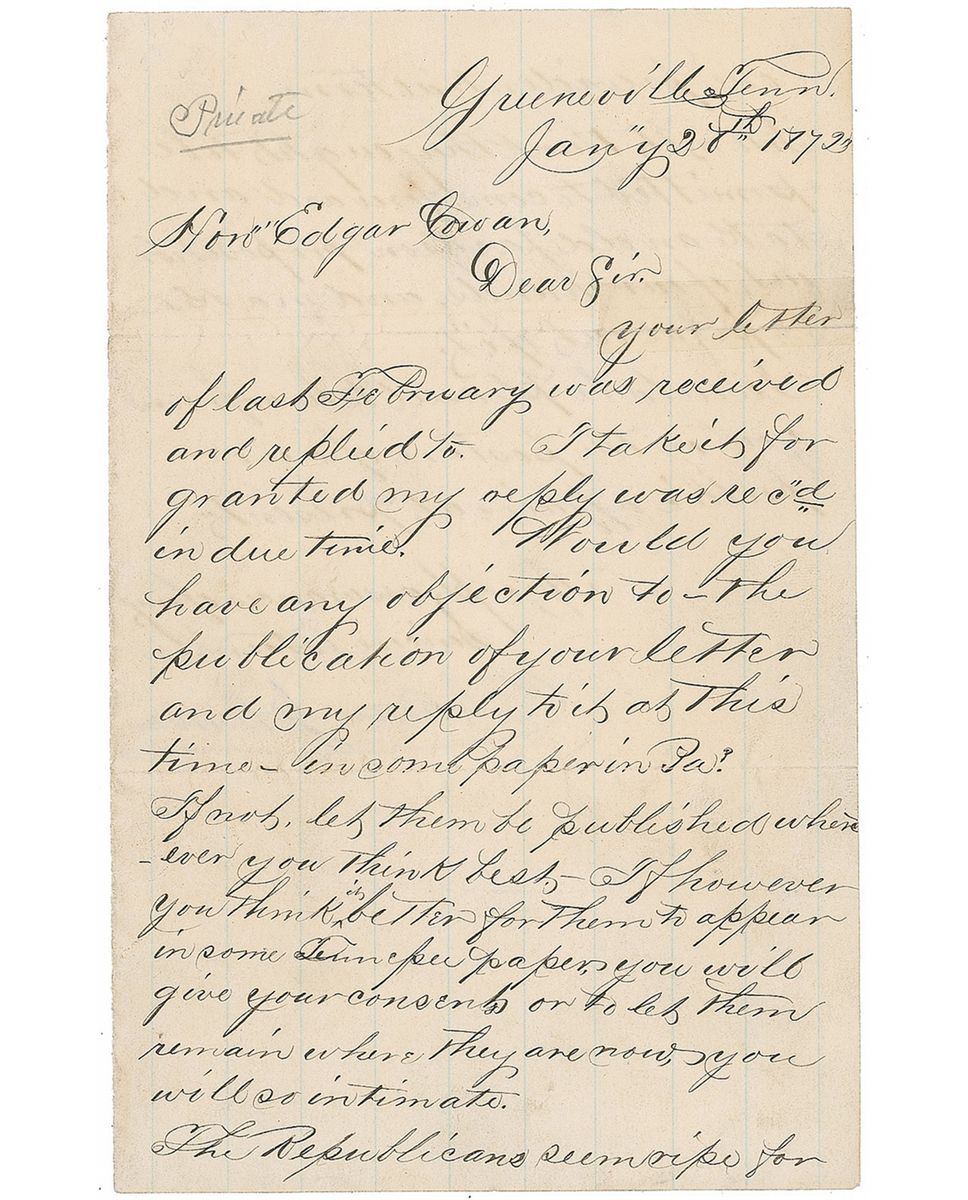 Private
Greeneville Tenn.
Jan'y 28th 187
Hon" Edgar Cowan,
Dear Sir.
your letter
of last February was received
and replied to. I take it for
granted my reply was rec"d
in due time. Would you
have any objection to - the
publication of your letter
and my reply to it at this
time - in some paper in Pa?
If not, let them be published when
-ever you think best - If however
you think it better for them to appear
in some Tennessee paper, you will
give your consent, or to let them
remain where they are now, you
will so intimate.
The Republicans seem ripe for